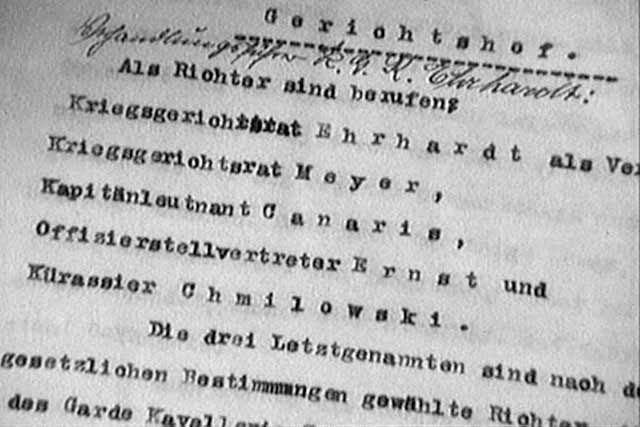 Gerichtshof.
Verhandlungsführer K.G.R. Ehrhardt:
Als Richter sind berufen:
Kriegsgerichtsrat Ehrhardt als Ver
Kriegsgerichtsrat Meyer,
Kapitänleutnant Canaris,
Offizierstellvertreter Ernst und
Kürassier Chmilowski.
Die drei Letztgenannten sind nach de
gesetzlichen Bestimmungen gewählte Richter
des Garde Kavallerie